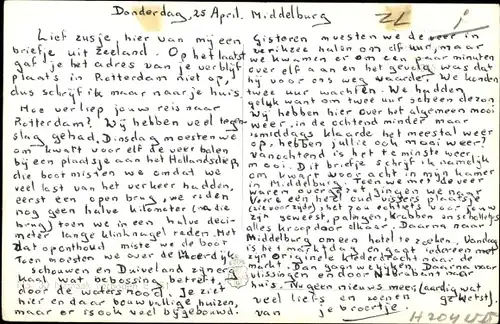 Donderdag, 25 April. Middelburg
Lief zusje, hier van mij een
briefje uit Zeeland. Op het laatst
gaf je het adres van je verblijf
plaats in Rotterdam niet op,
dus schrijf ik maar naar je huis.
Hoe verliep jouw reis naar
Rotterdam? Wij hebben veel tegen
slag gehad, Dinsdag moesten we
om kwart voor elf de veer halen
bij een plaatsje aan het Hollandsdiep,
die boot misten we omdat we
veel last van het verkeer hadden,
eerst een open brug, we reden
nog geen halve kilometer (na die
brug) toen we in een halve deci-
meter lange klinknagel reden. Met
dat openthoud miste we de boot
Toen moesten we over de
Schouwen en Duiveland zijn erg
kaal wat bebossing betreft,
door de watersnood. Je ziet
hier en daar bouwvallige huizen,
maar er is ook veel bijgebouwd.
gisteren moesten we de veer in
zerikzee halen om elf uur, maar
we kwamen er om een paar minuten
over elf aan en het gevolg was dat
hij voor ons weg vaarde. We konden
twee uur wachten. We hadden
gelijk want om twee uur scheen de zon
Wij hebben hier over het algemeen mooi
weer, in de ochtend minder maar
smiddags klaarde het meestal weer
op, hebben jullie ook mooi weer?
Vanochtend is het tenminste weer
mooi. Dit briefje schrijf ik namelijk
om kwart voor acht in mijn kamer
in Middelburg. Toen we met de veer
waren over gingen we naar
Veere een heel oud vissers plaatsje
zijn geweest, palingen, krabben
alles kroop door elkaar. Daarna naar
Middelburg om een hotel te zoeken. Vandaag
is het marktdag en gaat iedereen met
zijn originele klederdracht naar de
markt. Dan gaan we kijken. Daarna naar
Vlissingen en door N Brabant naar
huis. Nu geen nieuws meer (aardig wat
veel liefs en zoenen gekletst)
van je broertje,